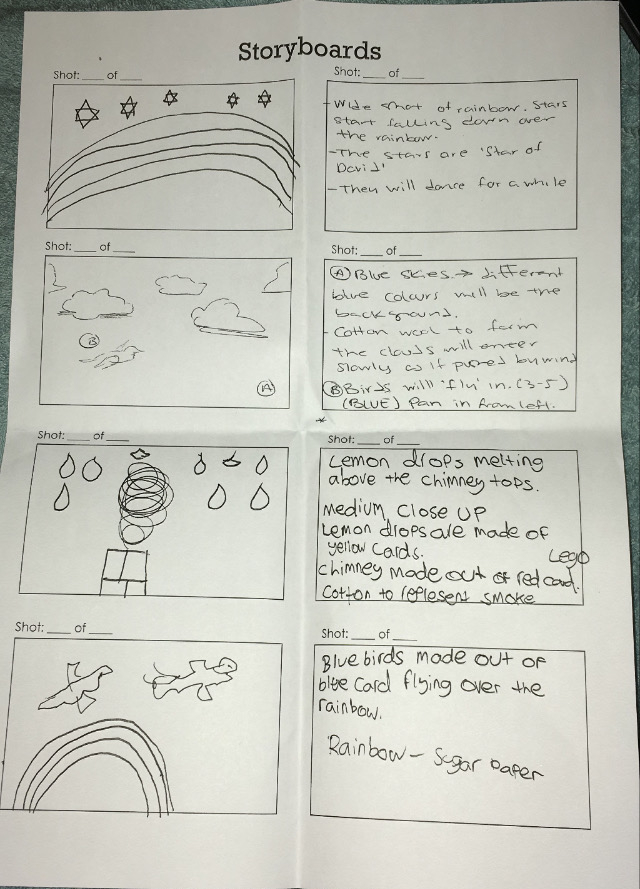 Storyboards
Shot: ___ of ___
Shot: ___ of ___
- Wide shot of rainbow. Stars
start falling down over
the rainbow.
- The stars are 'Star of
David'
- They will dance for a while
Shot: ___ of ___
B
A
Shot: ___ of ___
A Blue skies → different
blue colours will be the
background.
- Cotton wool to form
the clouds will enter
slowly as if pushed by wind
B Birds will 'fly' in. (3-5)
(BLUE) Pan in from left.
*
Shot: ___ of ___
Shot: ___ of ___
Lemon drops melting
above the chimney tops.
Medium close up
Lemon drops are made of
yellow cards.
Lego
Chimney made out of red card.
Cotton to represent smoke
Shot: ___ of ___
Shot: ___ of ___
Bluebirds made out of
blue card flying over the
rainbow.
Rainbow - Sugar paper